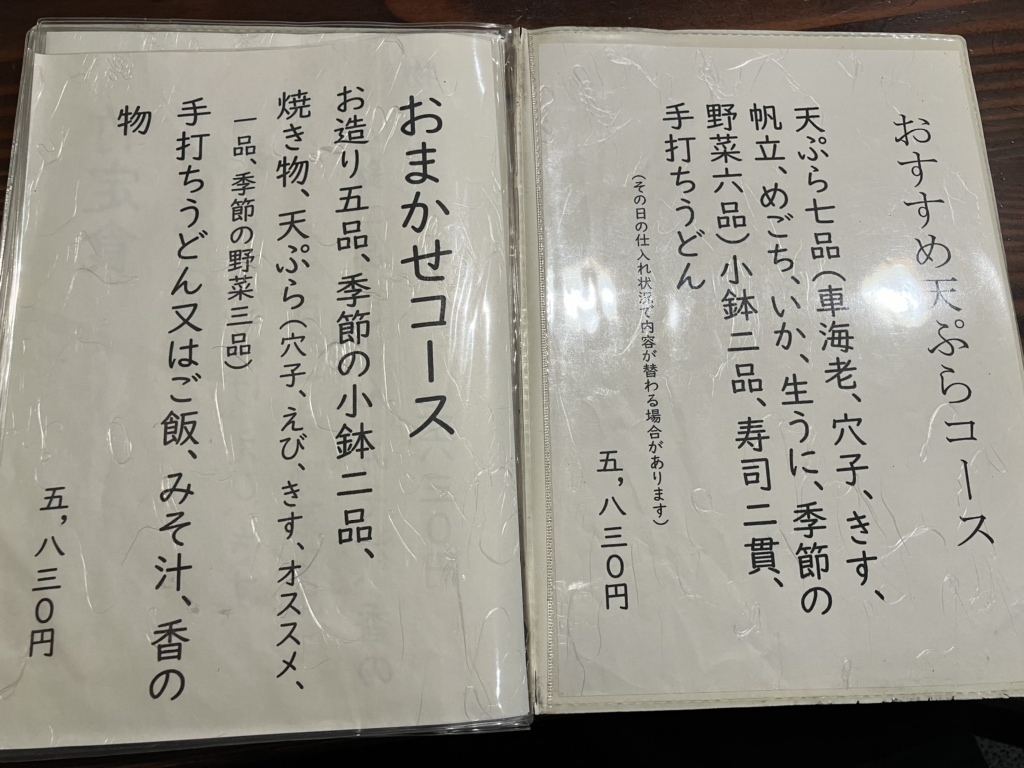 おすすめ天ぷらコース
天ぷら七品（車海老、穴子、きす、
帆立、めごち、いか、生うに、季節の
野菜六品）小鉢二品、寿司二貫、
手打ちうどん
（その日の仕入れ状況で内容が替わる場合があります）
五，八三０円
おまかせコース
お造り五品、季節の小鉢二品、
焼き物、天ぷら（穴子、えび、きす、オススメ、
一品、季節の野菜三品）
手打ちうどん又はご飯、みそ汁、香の
物
五，八三０円